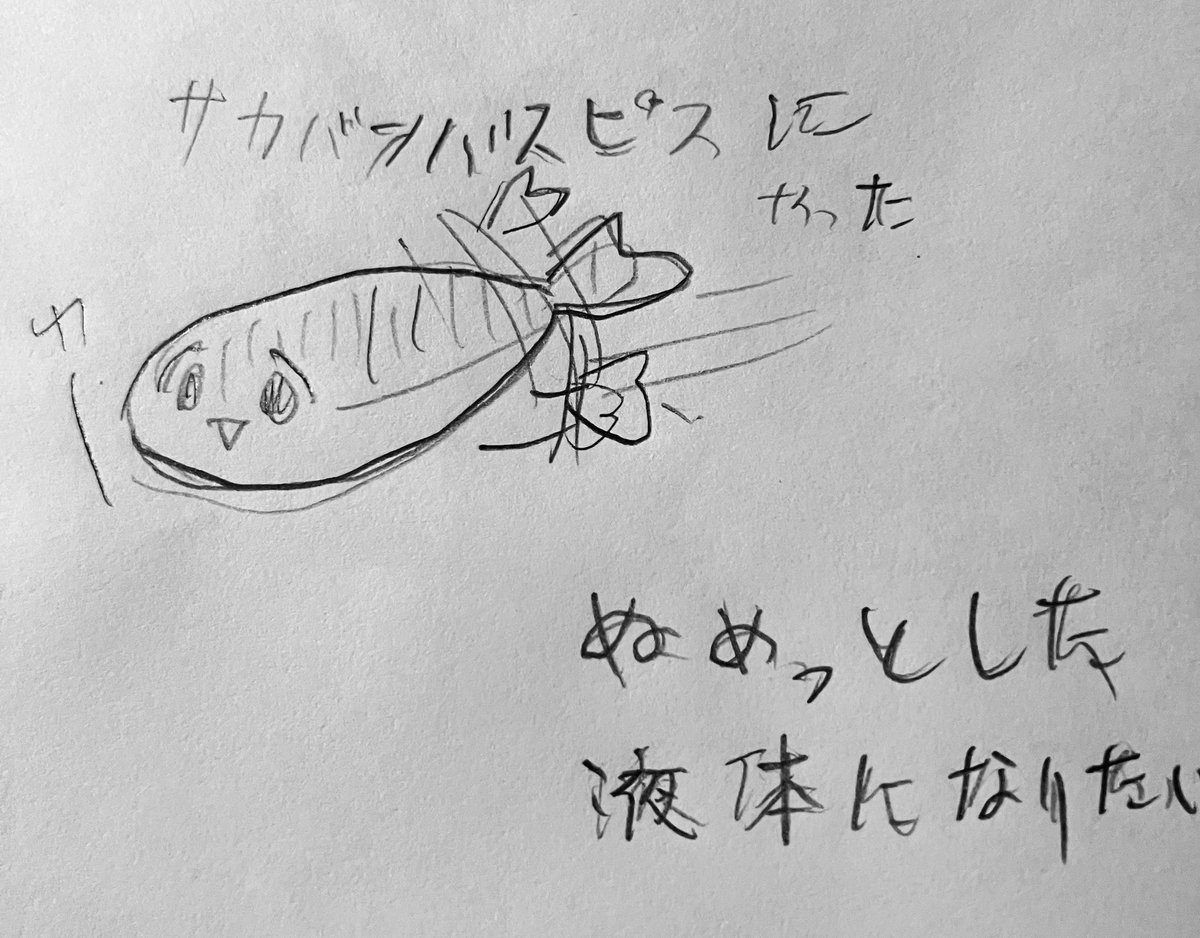 サカバンバスピスに
なった
サー
ぬめっとした
液体になりたい